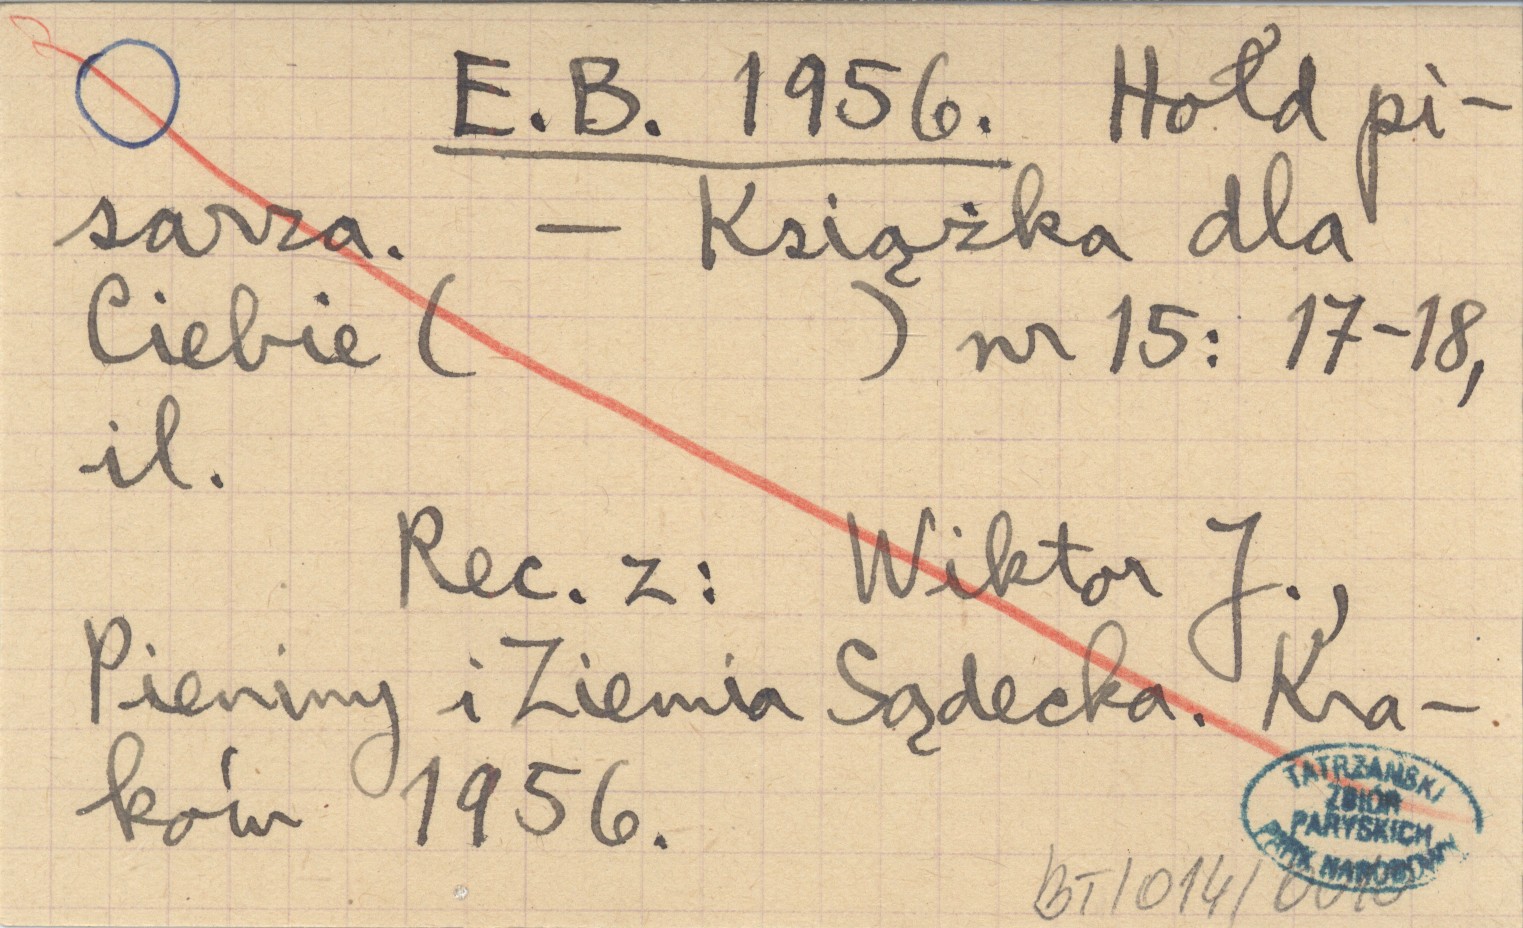 E.B. 1956. Hołd pi-
sarza. — Książka dla
Ciebie ( ) nr 15: 17-18,
il.
Rec. z: Wiktor J.,
Pieniny i Ziemia Sądecka. Kra-
ków 1956.
TATRZAŃSKI
ZBIÓR
PARYSKICH
PARK NARODOWY
BT/014/0010